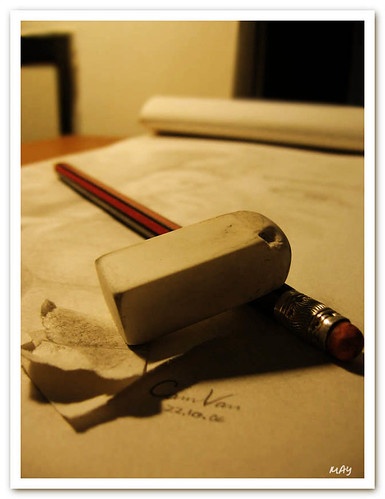 CamVan
22.10.06
MAY